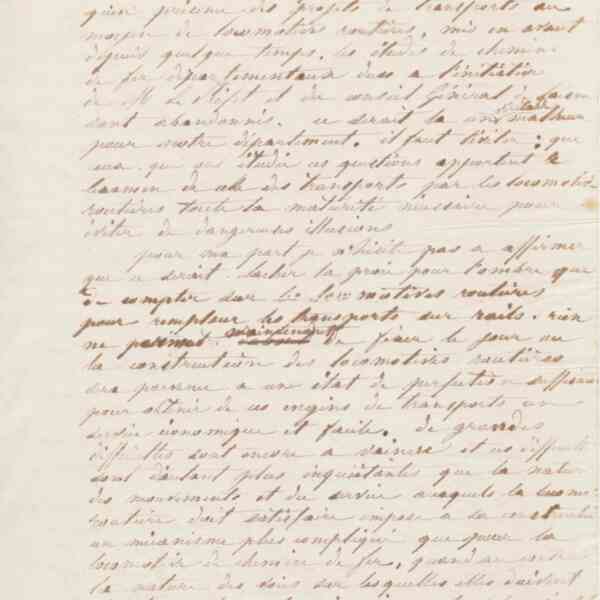 qu'en présence des projets de transports au
moyen de locomotives routières, mis en avant
depuis quelque temps, les études de chemins
de fer départementaux dues a l'initiative
de M. le Préfet et du conseil Général
sont abandonnés. ce serait la un malheur
pour notre département. il faut éviter que
ceux qui ont étudié ces questions apportent a
l'examen de celle des transports par les locomotives
routières toute la maturité nécessaire pour
éviter de dangereuses illusions
pour ma part je n'hésite pas a affirmer
que ce serait lacher la proie pour l'ombre que
de compter sur les locomotives routières
pour remplacer les transports sur rails. rien
ne permet maintenant de fixer le jour ou
la construction des locomotives routières
sera parvenue a un état de perfection suffisant
pour obtenir de ces engins de transports un
service économique et facile. de grandes
difficultés sont encore a vaincre et ces difficultés
sont d'autant plus inquiétantes que la nature
des mouvements et du service auxquels la locomotive
routière doit satisfaire impose a sa construction
un mécanisme plus compliqué que pour la
locomotive de chemin de fer, quand au
la nature des voies sur lesquelles elles doivent